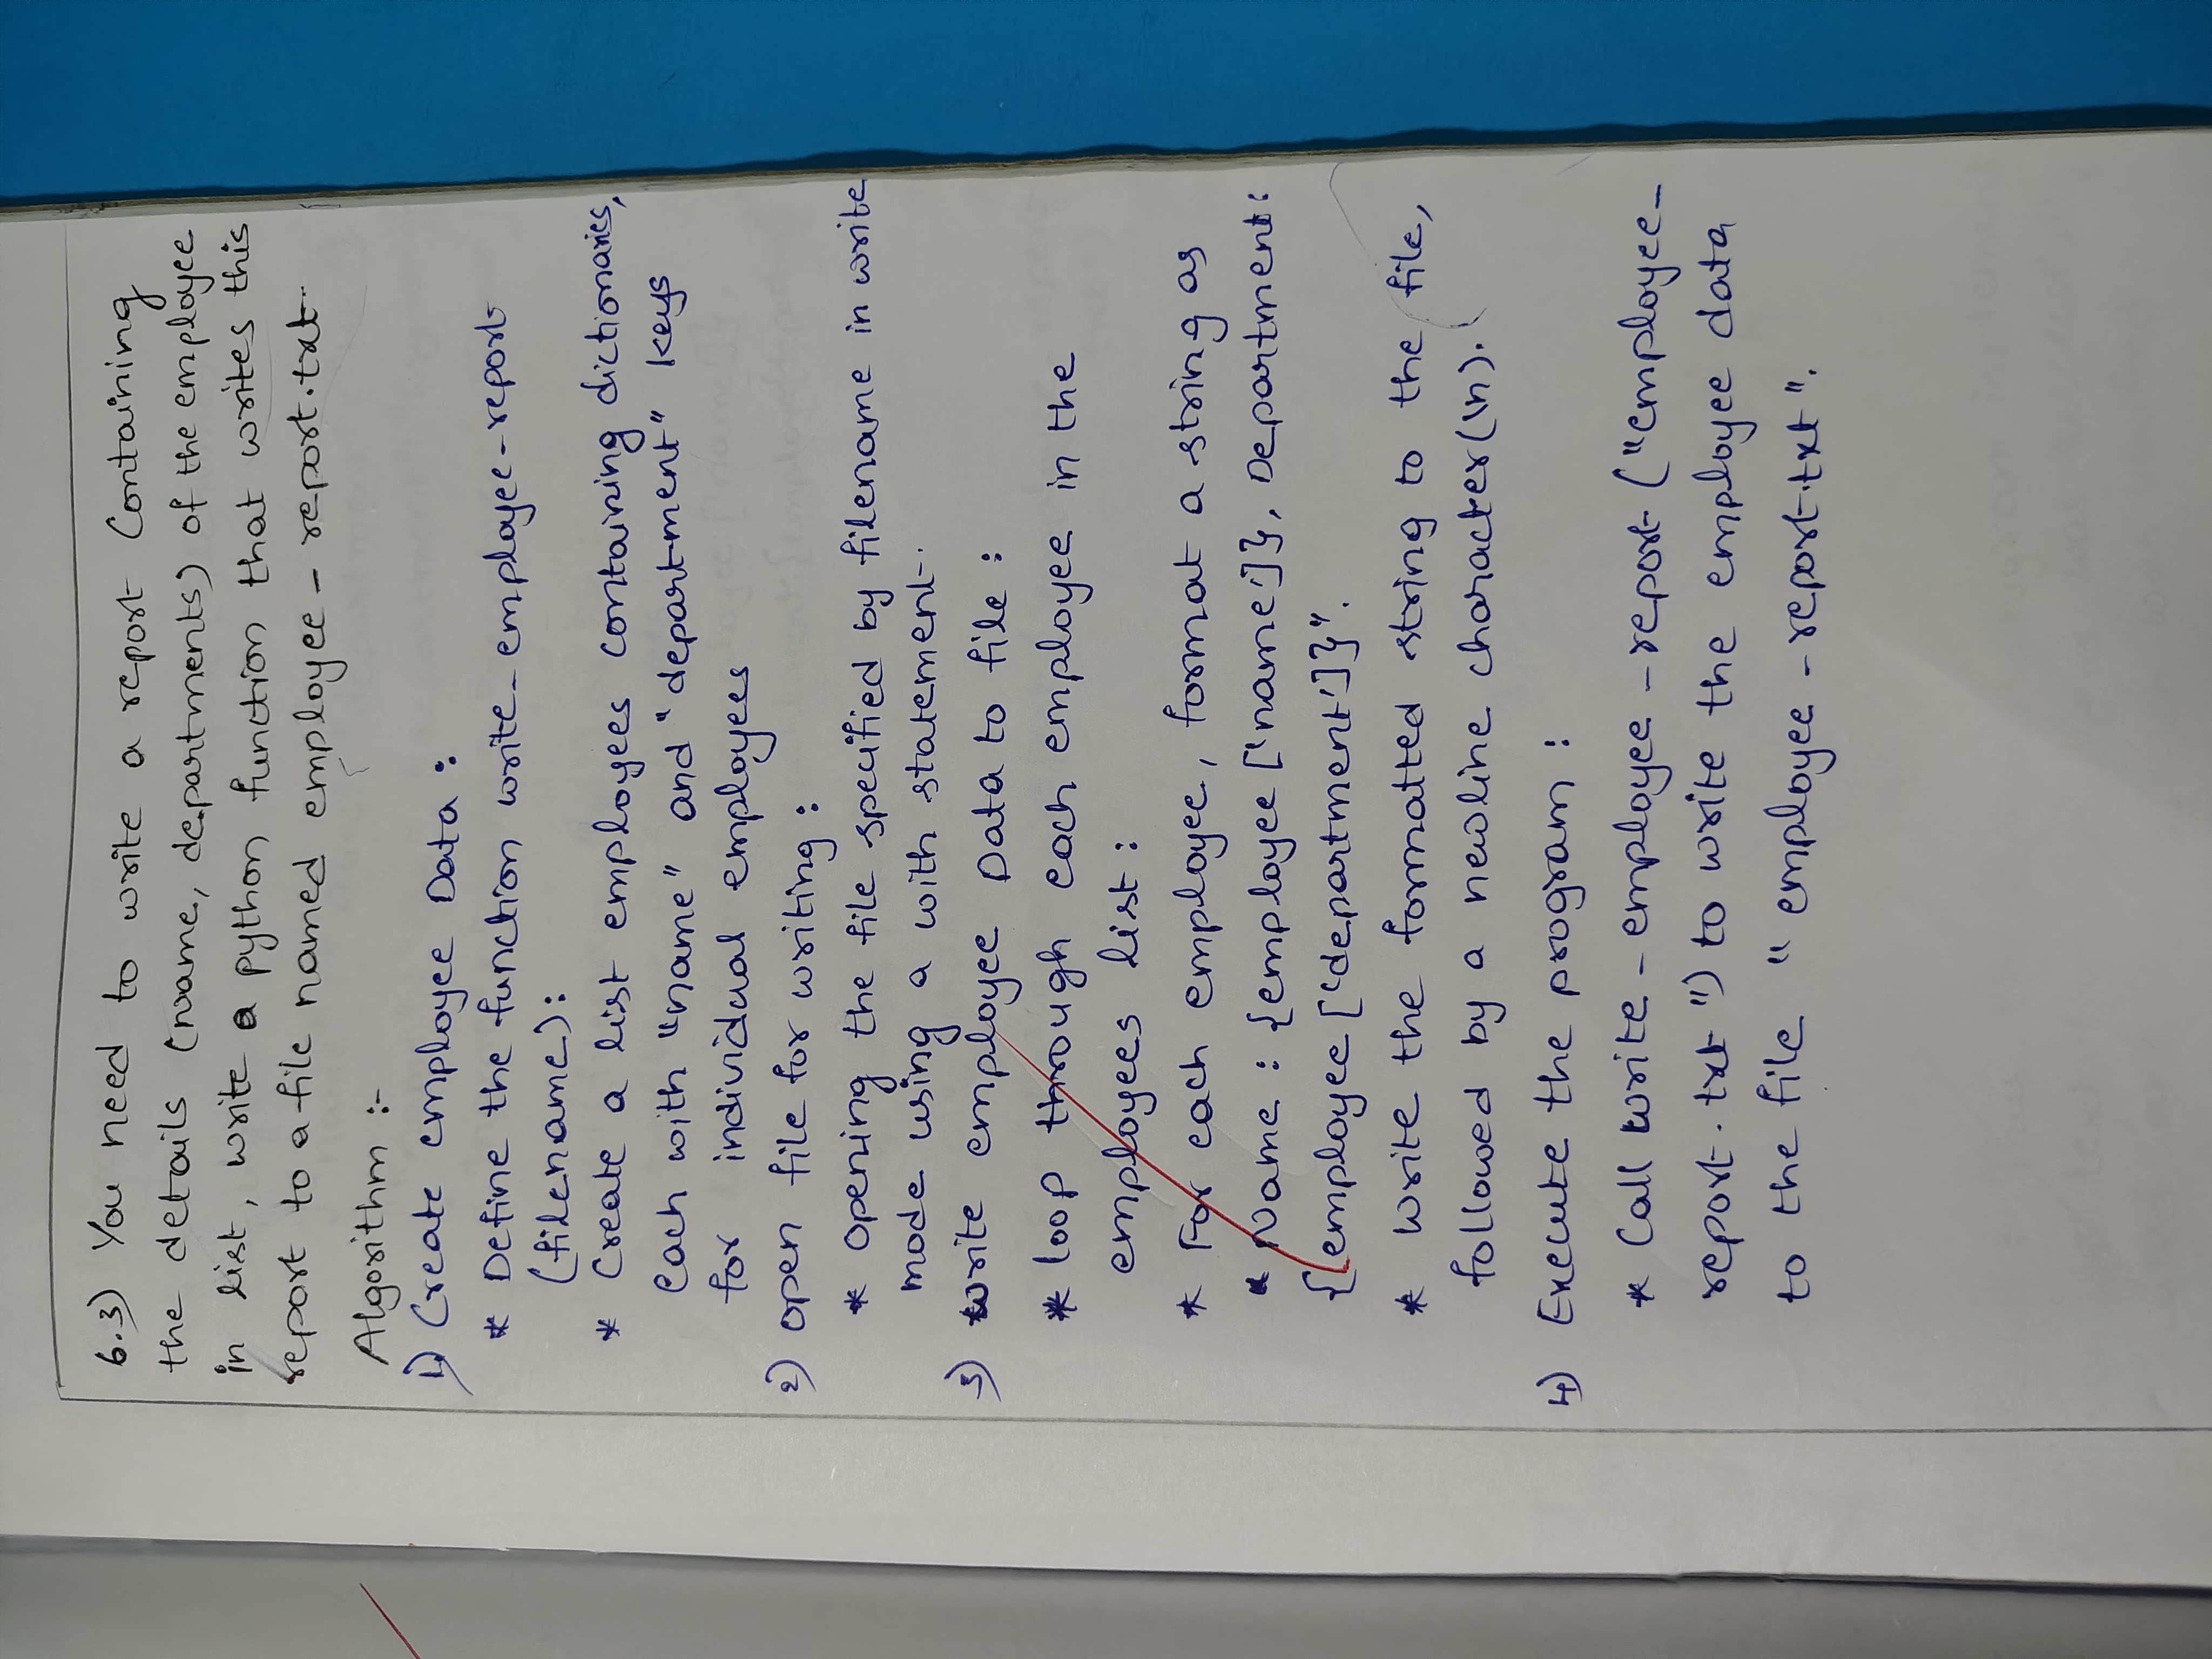 6.3) You need to write a report Containing
the details (name, departments) of the employee
in list, write a python function that writes this
report to a file named employee-report.txt.
Algorithm :-
1) Create employee Data :
* Define the function write_employee-report
(filename):
* Create a list employees containing dictionaries,
each with "name" and "department" keys
for individual employees
2) open file for writing :
* opening the file specified by filename in write
mode using a with statement.
3) write employee Data to file :
* loop through each employee in the
employees list :
* For each employee, format a string as
" Name : {employee ['name']}, Department:
{employee ['department']}".
* Write the formatted string to the file,
followed by a newline character(\n).
4) Execute the program :
* Call write-employee-report ("employee-
report.txt") to write the employee data
to the file "employee-report.txt".